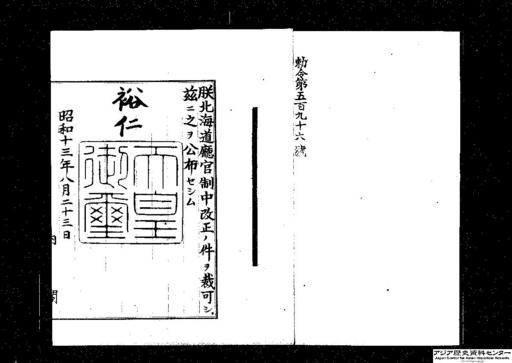 勅令第五百九十六號
朕北海道廳官制中改正ノ件ヲ裁可シ
茲ニ之ヲ公布セシム
裕仁
天皇御璽
昭和十三年八月二十三日
内閣
アジア歴史資料センター
Japan Center for Asian Historical Records